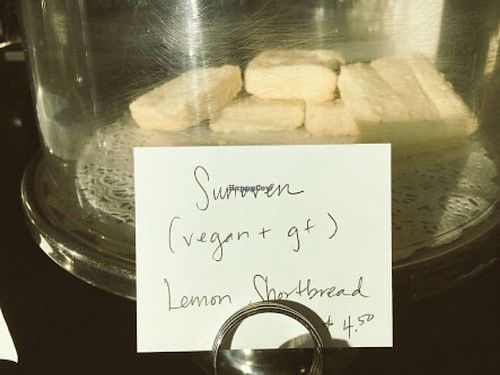 Sunoven
HappyCow
(vegan + gf)
Lemon Shortbread
$ 4.50